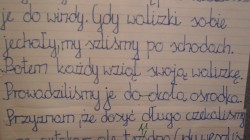 je do windy. Gdy walizki sobie
jechały, my szliśmy po schodach.
Potem każdy wziął swoją walizkę.
Prowadziliśmy je do-okoła ośrodka.
Przyznam, że dosyć długo czekaliśmy